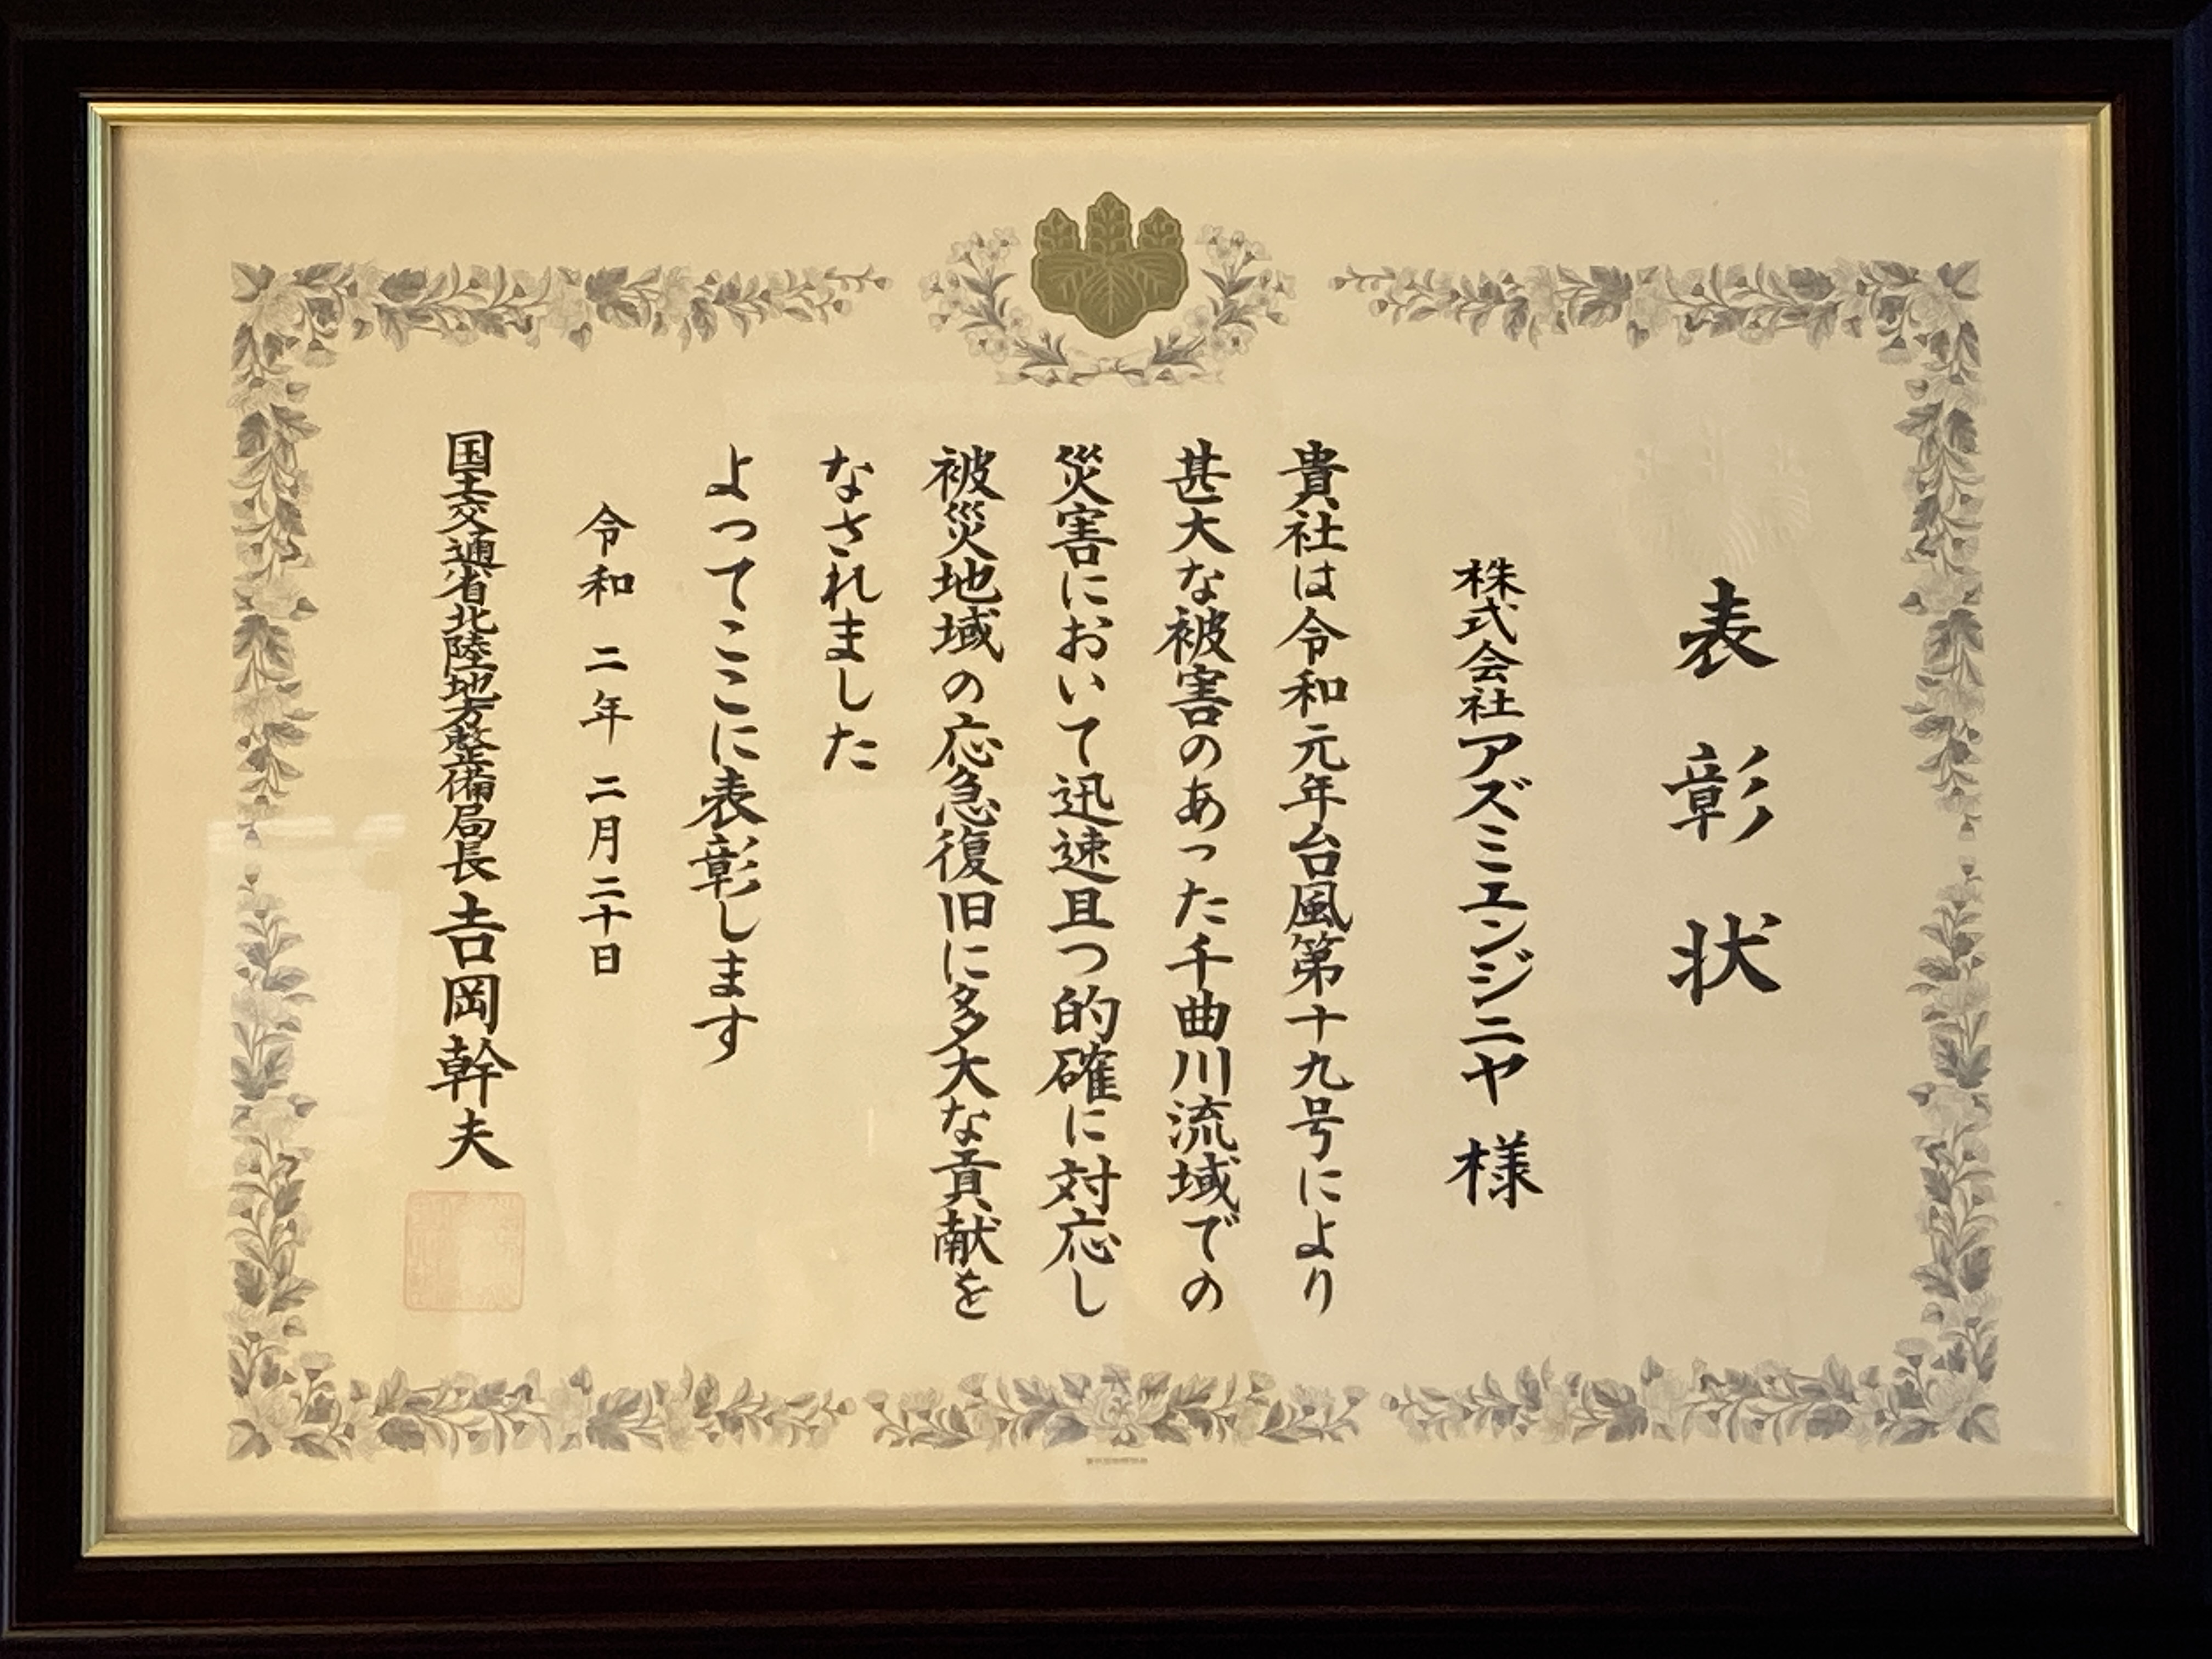 表彰状
株式会社アズミエンジニヤ 様
貴社は令和元年台風第十九号により
甚大な被害のあった千曲川流域での
災害において迅速且つ的確に対応し
被災地域の応急復旧に多大な貢献を
なされました
よってここに表彰します
令和 二年 二月二十日
国土交通省北陸地方整備局長 吉岡幹夫